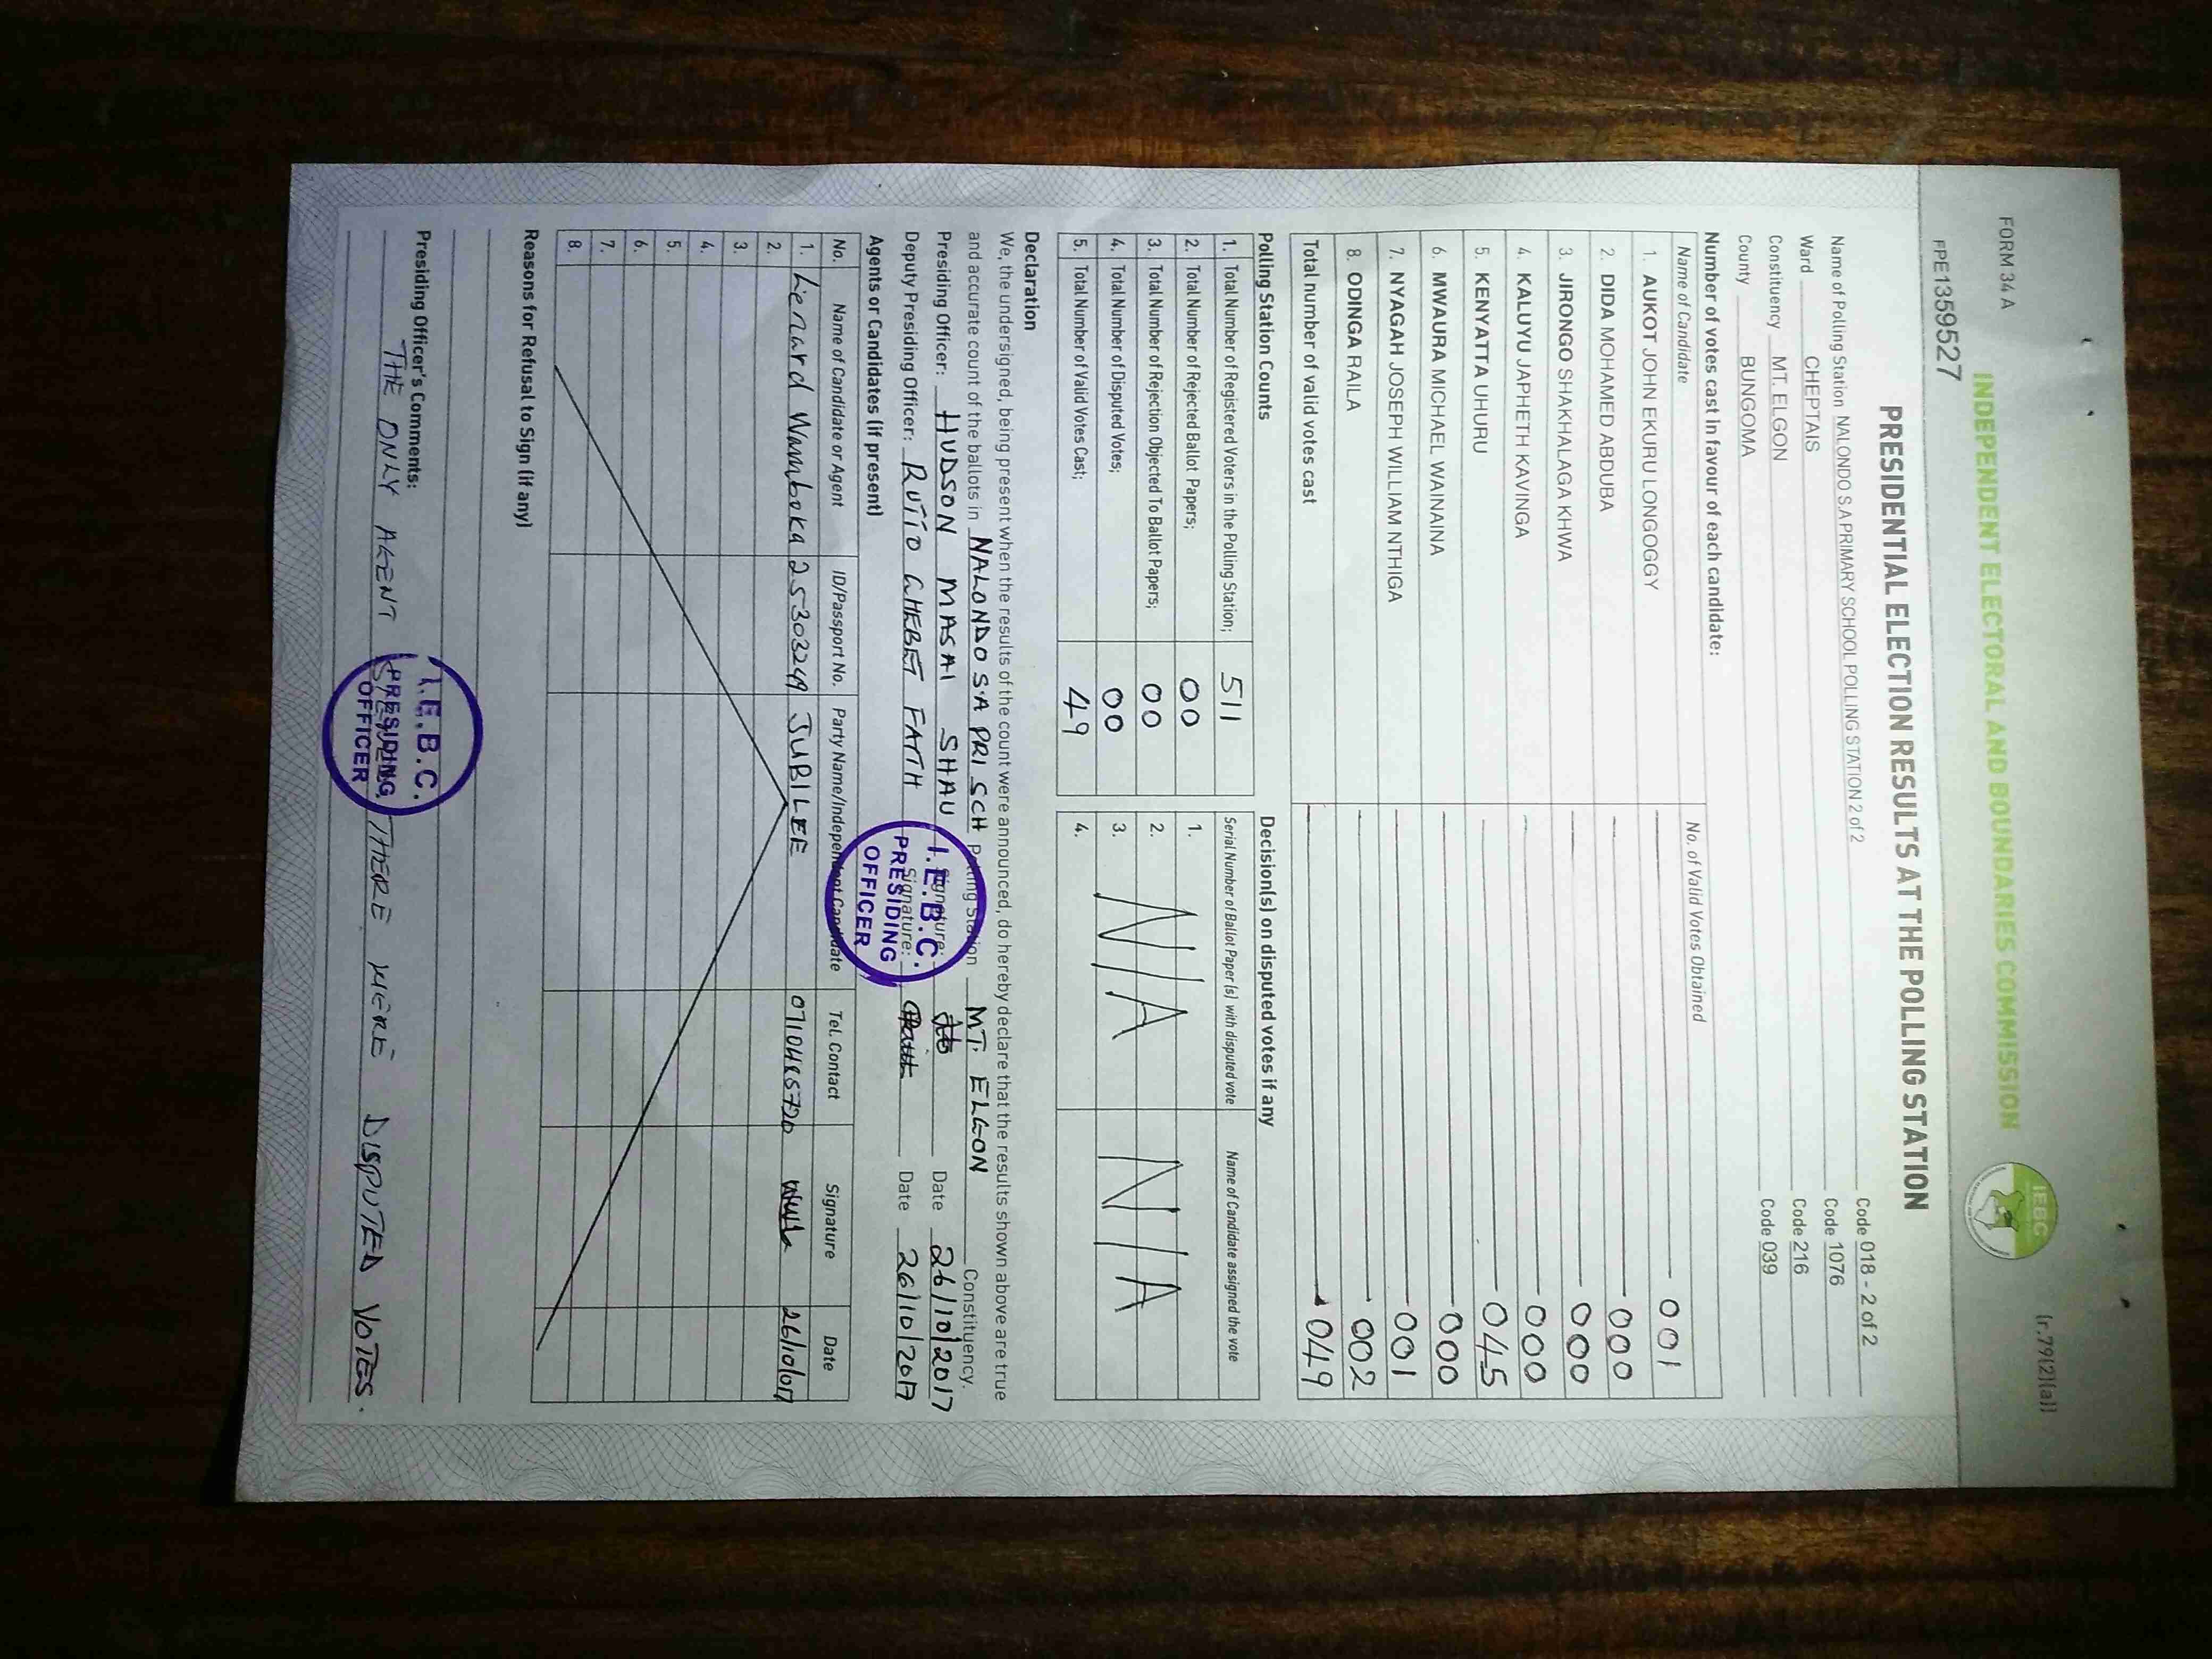 FORM 34 A
[r.79(2)(a)]
INDEPENDENT ELECTORAL AND BOUNDARIES COMMISSION
IEBC
FPE1359527
PRESIDENTIAL ELECTION RESULTS AT THE POLLING STATION
Name of Polling Station NALONDO S.A PRIMARY SCHOOL POLLING STATION 2 of 2 Code 018 - 2 of 2
Ward CHEPTAIS Code 1076
Constituency MT. ELGON Code 216
County BUNGOMA Code 039
Number of votes cast in favour of each candidate:
Name of Candidate No. of Valid Votes Obtained
1. AUKOT JOHN EKURU LONGOGGY 001
2. DIDA MOHAMED ABDUBA 000
3. JIRONGO SHAKHALAGA KHWA 000
4. KALUYU JAPHETH KAVINGA 000
5. KENYATTA UHURU 045
6. MWAURA MICHAEL WAINAINA 000
7. NYAGAH JOSEPH WILLIAM NTHIGA 001
8. ODINGA RAILA 002
Total number of valid votes cast 049
Polling Station Counts
1. Total Number of Registered Voters in the Polling Station; 511
2. Total Number of Rejected Ballot Papers; 00
3. Total Number of Rejection Objected To Ballot Papers; 00
4. Total Number of Disputed Votes; 00
5. Total Number of Valid Votes Cast; 49
Decision(s) on disputed votes if any
Serial Number of Ballot Paper(s) with disputed vote Name of Candidate assigned the vote
1.
2.
3.
4.
N/A N/A
Declaration
We, the undersigned, being present when the results of the count were announced, do hereby declare that the results shown above are true
and accurate count of the ballots in NALONDO S.A PRI SCH Polling Station MT. ELGON Constituency.
Presiding Officer: HUDSON MASAI SHAU Signature: Date 26/10/2017
Deputy Presiding Officer: RUTTO CHEBET FAITH Signature: Date 26/10/2017
I.E.B.C.
PRESIDING
OFFICER
Agents or Candidates (if present)
No. Name of Candidate or Agent ID/Passport No. Party Name/Independent Candidate Tel. Contact Signature Date
1. Lienard Wamboka 25303249 JUBILEE
2.
3.
4.
5.
6.
7.
8.
Reasons for Refusal to Sign (if any)
Presiding Officer's Comments:
THE ONLY AGENT THERE WERE DISPUTED VOTES.
I.E.B.C.
PRESIDING
OFFICER